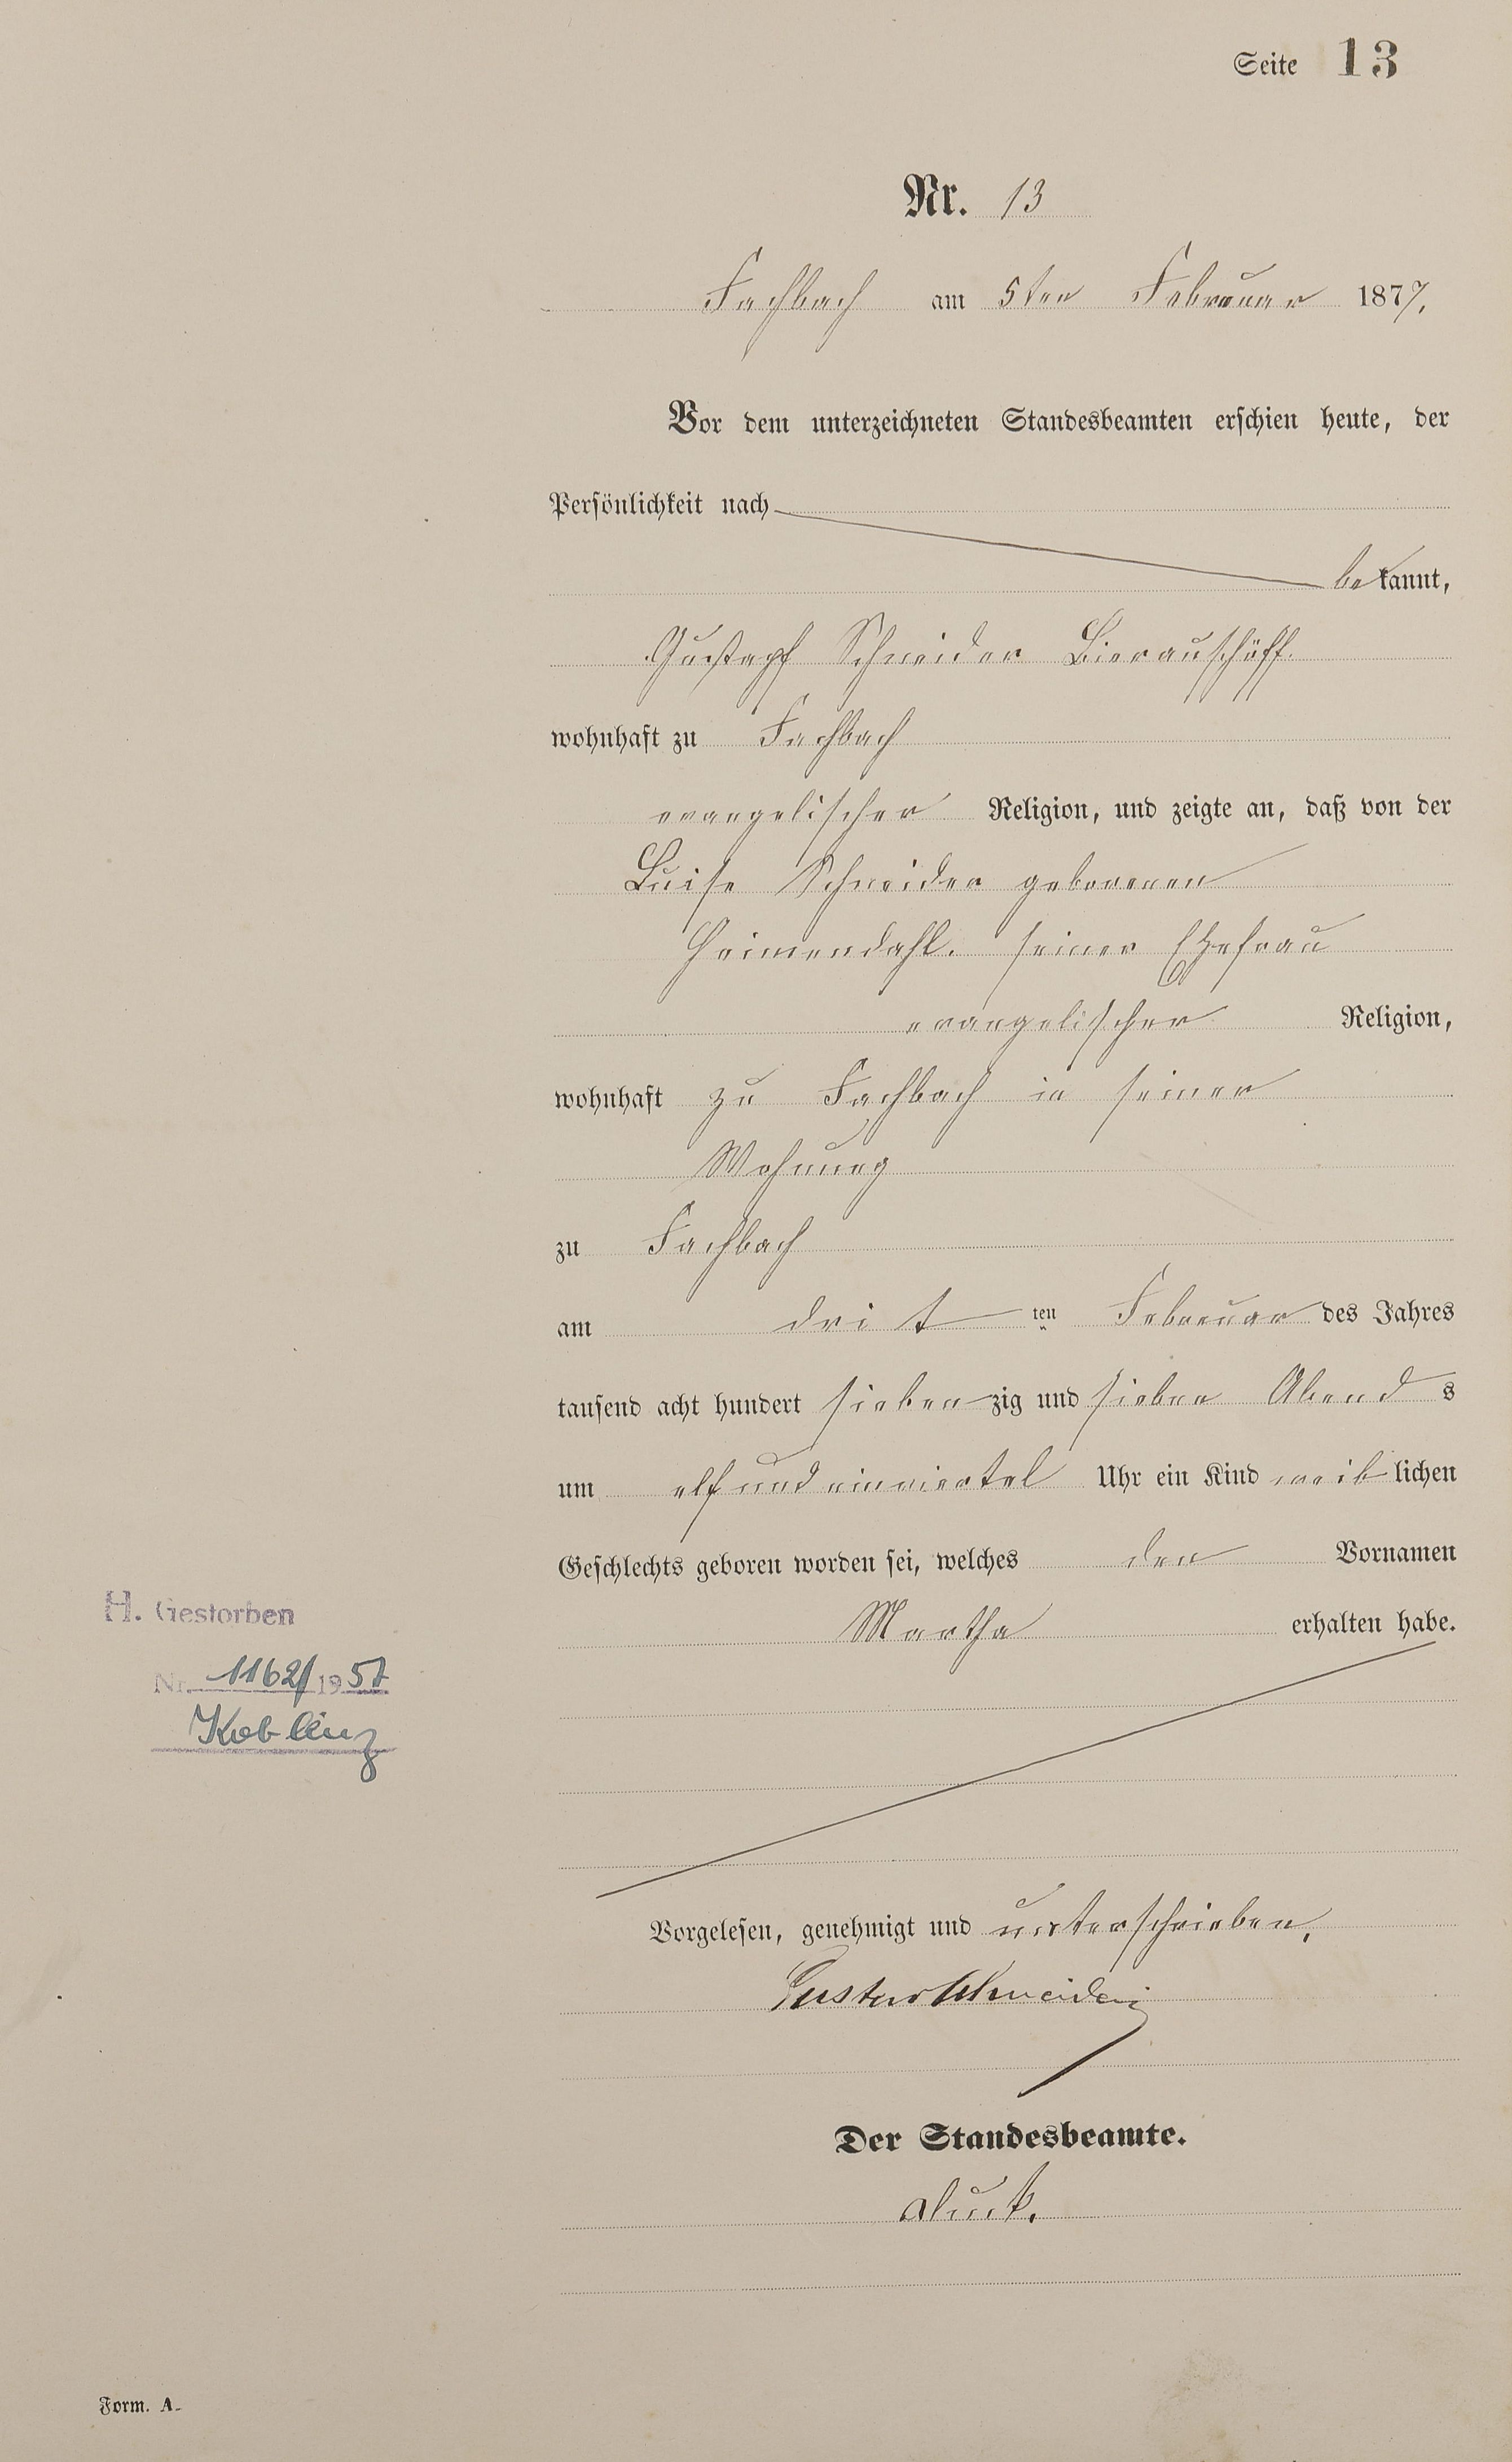 Seite 13
Nr. 13
Fachbach am 5ten Februar 1877.
Vor dem unterzeichneten Standesbeamten erschien heute, der
Persönlichkeit nach
bekannt,
Gustapf Schneider Bierauschöff
wohnhaft zu Fachbach
evangelischer Religion, und zeigte an, daß von der
Luise Schneider geborenen
Heimendahl. seiner Ehefrau
evangelischer Religion,
wohnhaft zu Fachbach in seiner
Wohnung
zu Fachbach
am dritten Februar des Jahres
tausend acht hundert siebenzig und sieben Abends
um elf und einviertel Uhr ein Kind weiblichen
Geschlechts geboren worden sei, welches den Vornamen
Martha erhalten habe.
H. Gestorben
Nr. 1162/1957
Koblenz
Vorgelesen, genehmigt und unterschrieben.
Gustav Schneider
Der Standesbeamte.
Form. A.